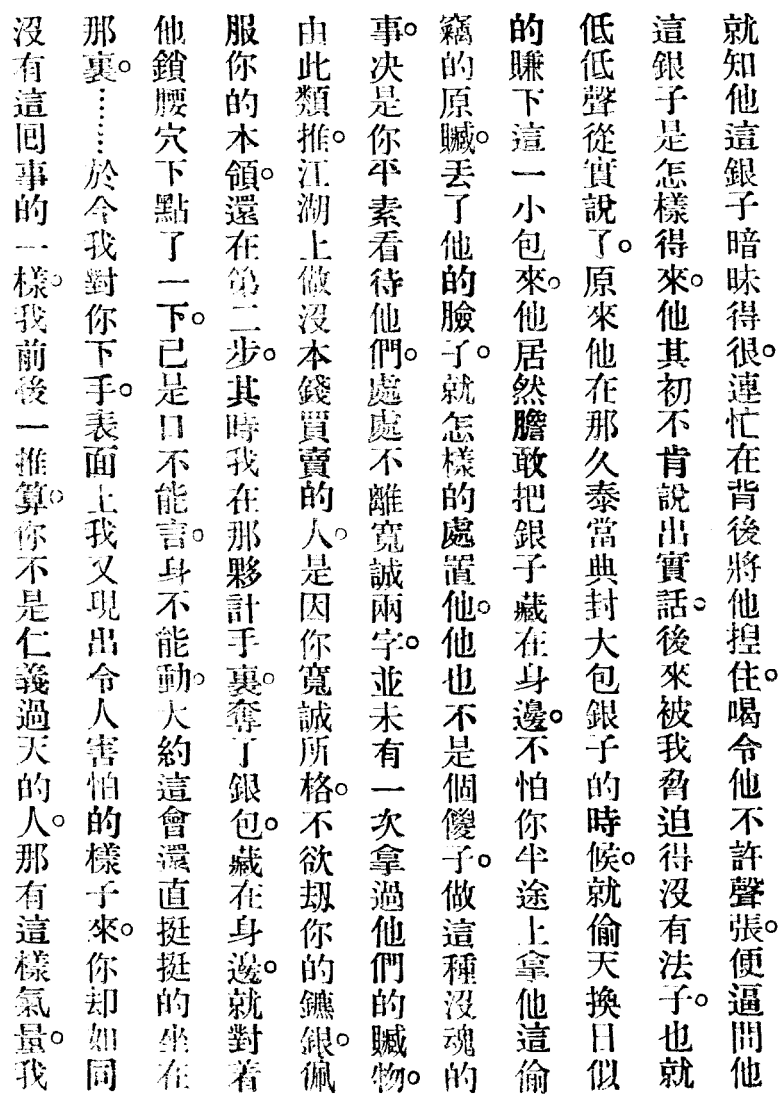 就知他這銀子暗昧得很。連忙在背後將他揑住。喝令他不許聲張。便逼問他
這銀子是怎樣得來。他其初不肯說出實話。後來被我脅迫得沒有法子。也就
低低聲從實說了。原來他在那久泰當典封大包銀子的時候。就偷天換日似
的賺下這一小包來。他居然膽敢把銀子藏在身邊。不怕你半途上拿他這偷
竊的原贓。丟了他的臉子。就怎樣的處置他。他也不是個傻子。做這種沒魂的
事。决是你平素看待他們。處處不離寬誠兩字。並未有一次拿過他們的贓物。
由此類推。江湖上做沒本錢買賣的人。是因你寬誠所格。不欲刼你的鑣銀。佩
服你的本領。還在第二步。其時我在那夥計手裏。奪了銀包。藏在身邊。就對着
他鎖腰穴下點了一下。已是口不能言。身不能動。大約這會還直挺挺的坐在
那裏。……於今我對你下手。表面上我又現出令人害怕的樣子來。你却如同
沒有這回事的一樣。我前後一推算。你不是仁義過天的人。那有這樣氣量。我